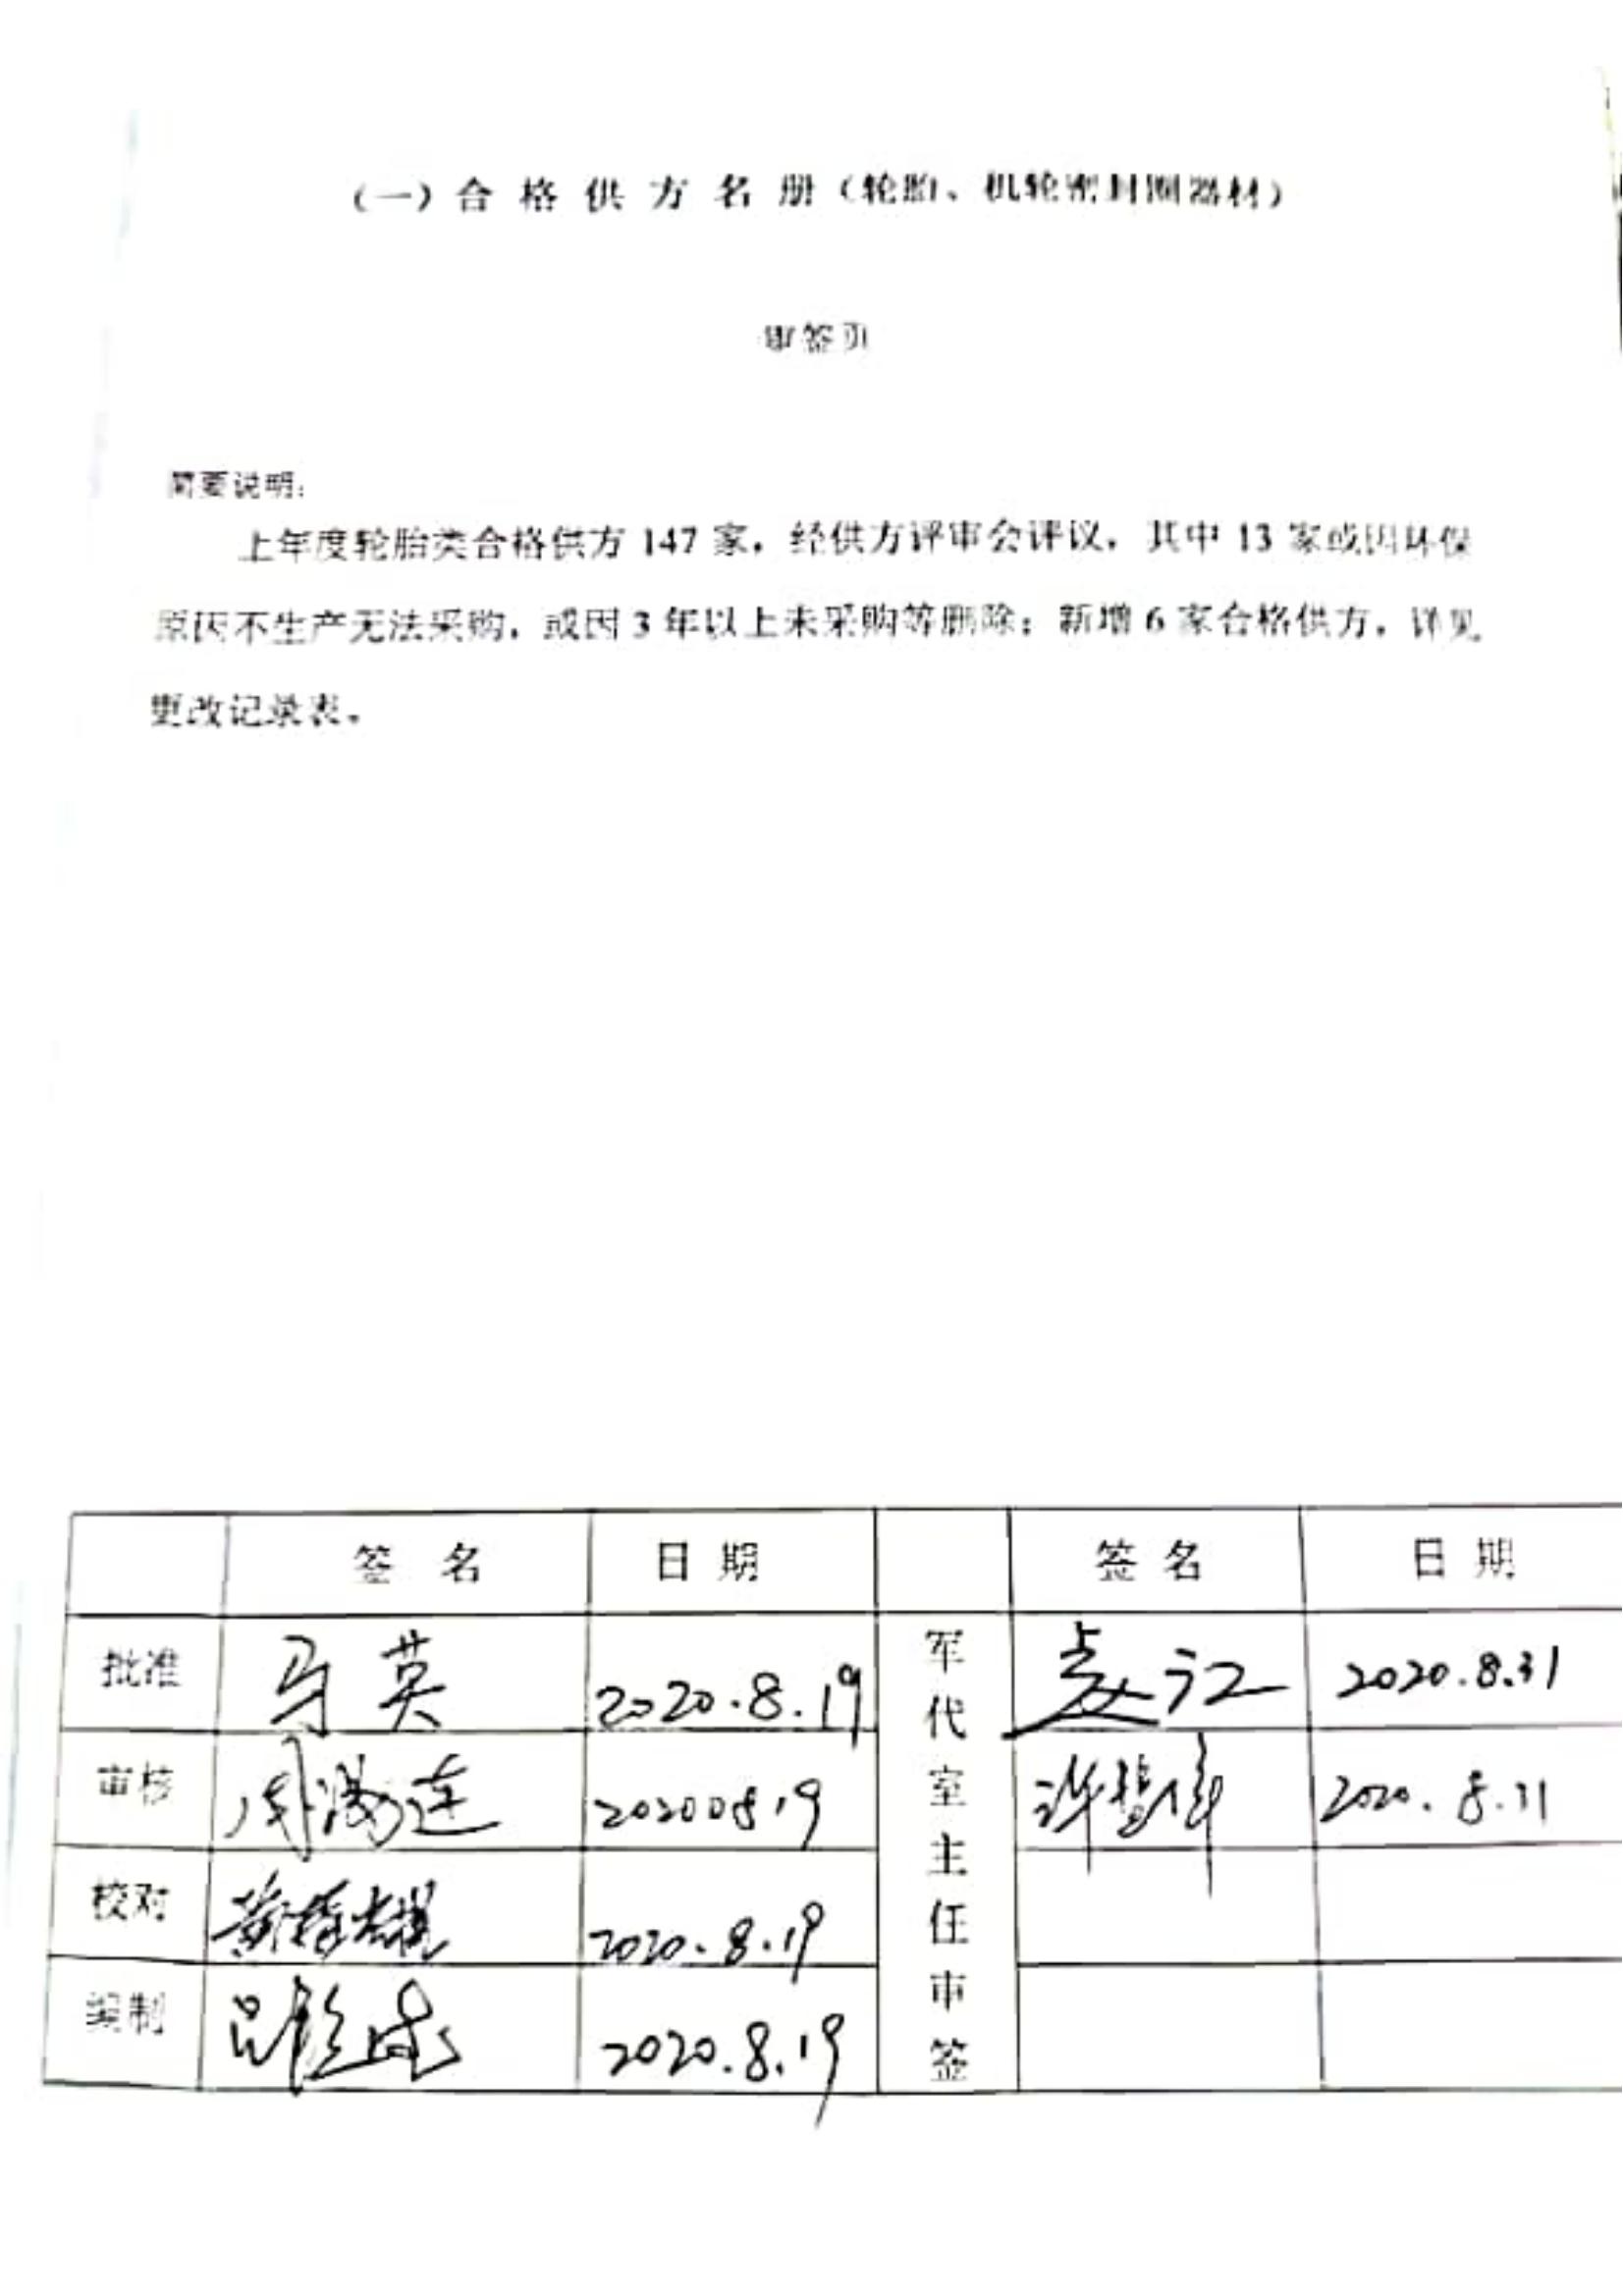 （一）合格供方名册（轮胎、机轮密封圈器材）
审签页
简要说明：
上年度轮胎类合格供方 147 家，经供方评审会评议，其中 13 家或因环保
原因不生产无法采购，或因 3 年以上未采购等删除；新增 6 家合格供方，详见
更改记录表。
签 名 日 期 签 名 日 期
批准 马英 2020.8.19 军代室主任审签 2020.8.31
审核 20200819 2020.8.31
校对 2020.8.19
编制 2020.8.19